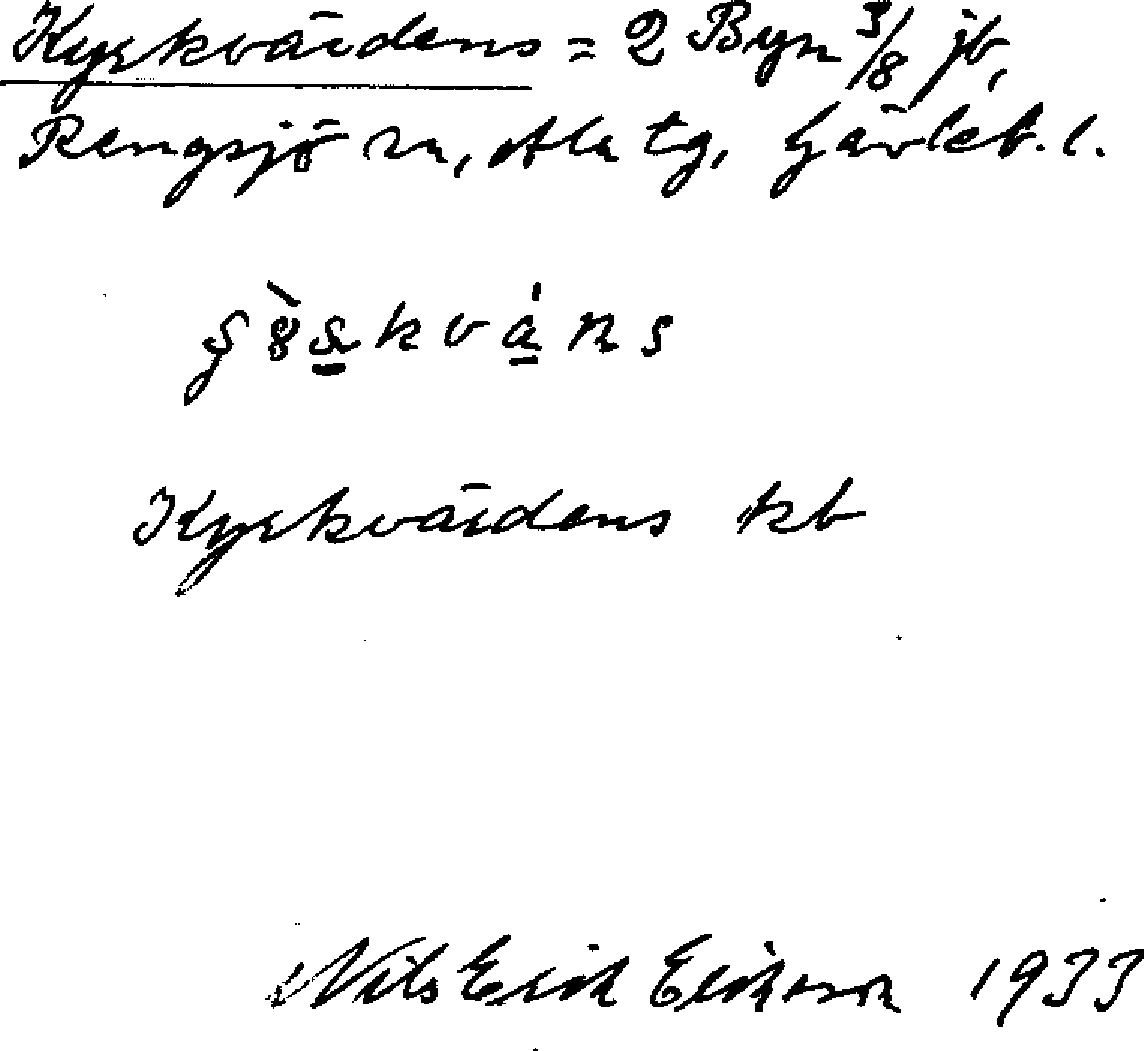 Kyrkvärdens = 2 Byn 3/8 jb,
Rengsjö sn, Ala tg, Gävleb. l.
Kyrkvärdens kb
Nils Erik Eriksson 1933